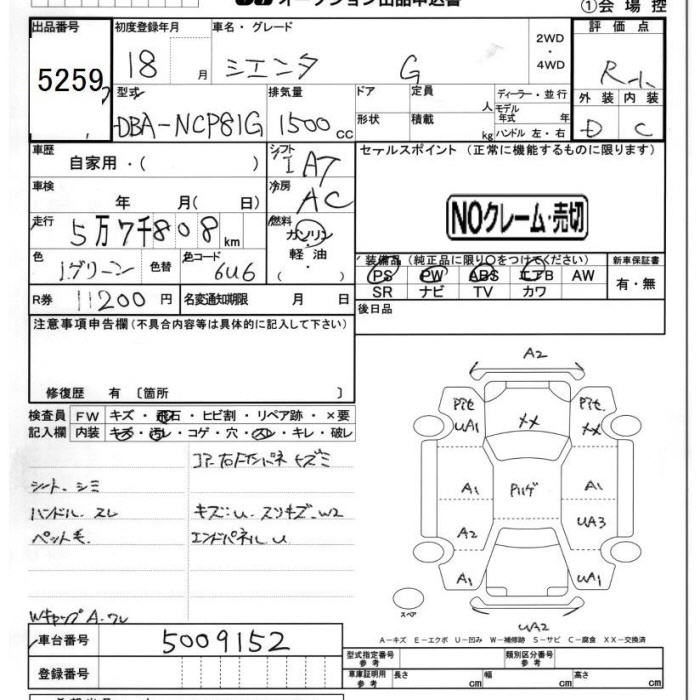 オークション出品申込書
①会場控
出品番号 初度登録年月 車名・グレード 評価点
5259 18 月 シエンタ G 2WD・4WD R-1
外装 内装
D C
型式 排気量 ドア 定員 人 ディーラー・並行
DBA-NCP81G 1500 cc 形状 積載 kg モデル年式 年
ハンドル 左・右
車歴 シフト セールスポイント (正常に機能するものに限ります)
自家用・( ) I AT
車検 冷房
年 月( 日) AC
NOクレーム・売切
走行 燃料
5万7千808km ガソリン・軽油・( )
色 色替 色コード 装備品(純正品に限り○をつけてください) 新車保証書
Iグリーン 6U6 PS PW ABS エアB AW 有・無
SR ナビ TV カワ
R券 11200円 名変通知期限 月 日 後日品
注意事項申告欄(不具合内容等は具体的に記入して下さい)
修復歴 有 〔箇所 〕
検査員 FW キズ・飛石・ヒビ割・リペア跡・×要
記入欄 内装 キズ・汚レ・コゲ・穴・スレ・キレ・破レ
シート、シミ
ハンドル スレ キズ:U スリキズ W2
ペット毛 エンドパネル U
Wキャップ A・ワレ
A2
Pit Pit
UA1 XX XX
A1 A1
A2 UA3
A1 UA1
スペア
UA2
A-キズ E-エクボ U-凹み W-補修跡 S-サビ C-腐食 XX-交換済
車台番号 5009152
型式指定番号 参考 類別区分番号 参考
登録番号 車庫証明用 参考 長さ cm 幅 cm 高さ cm